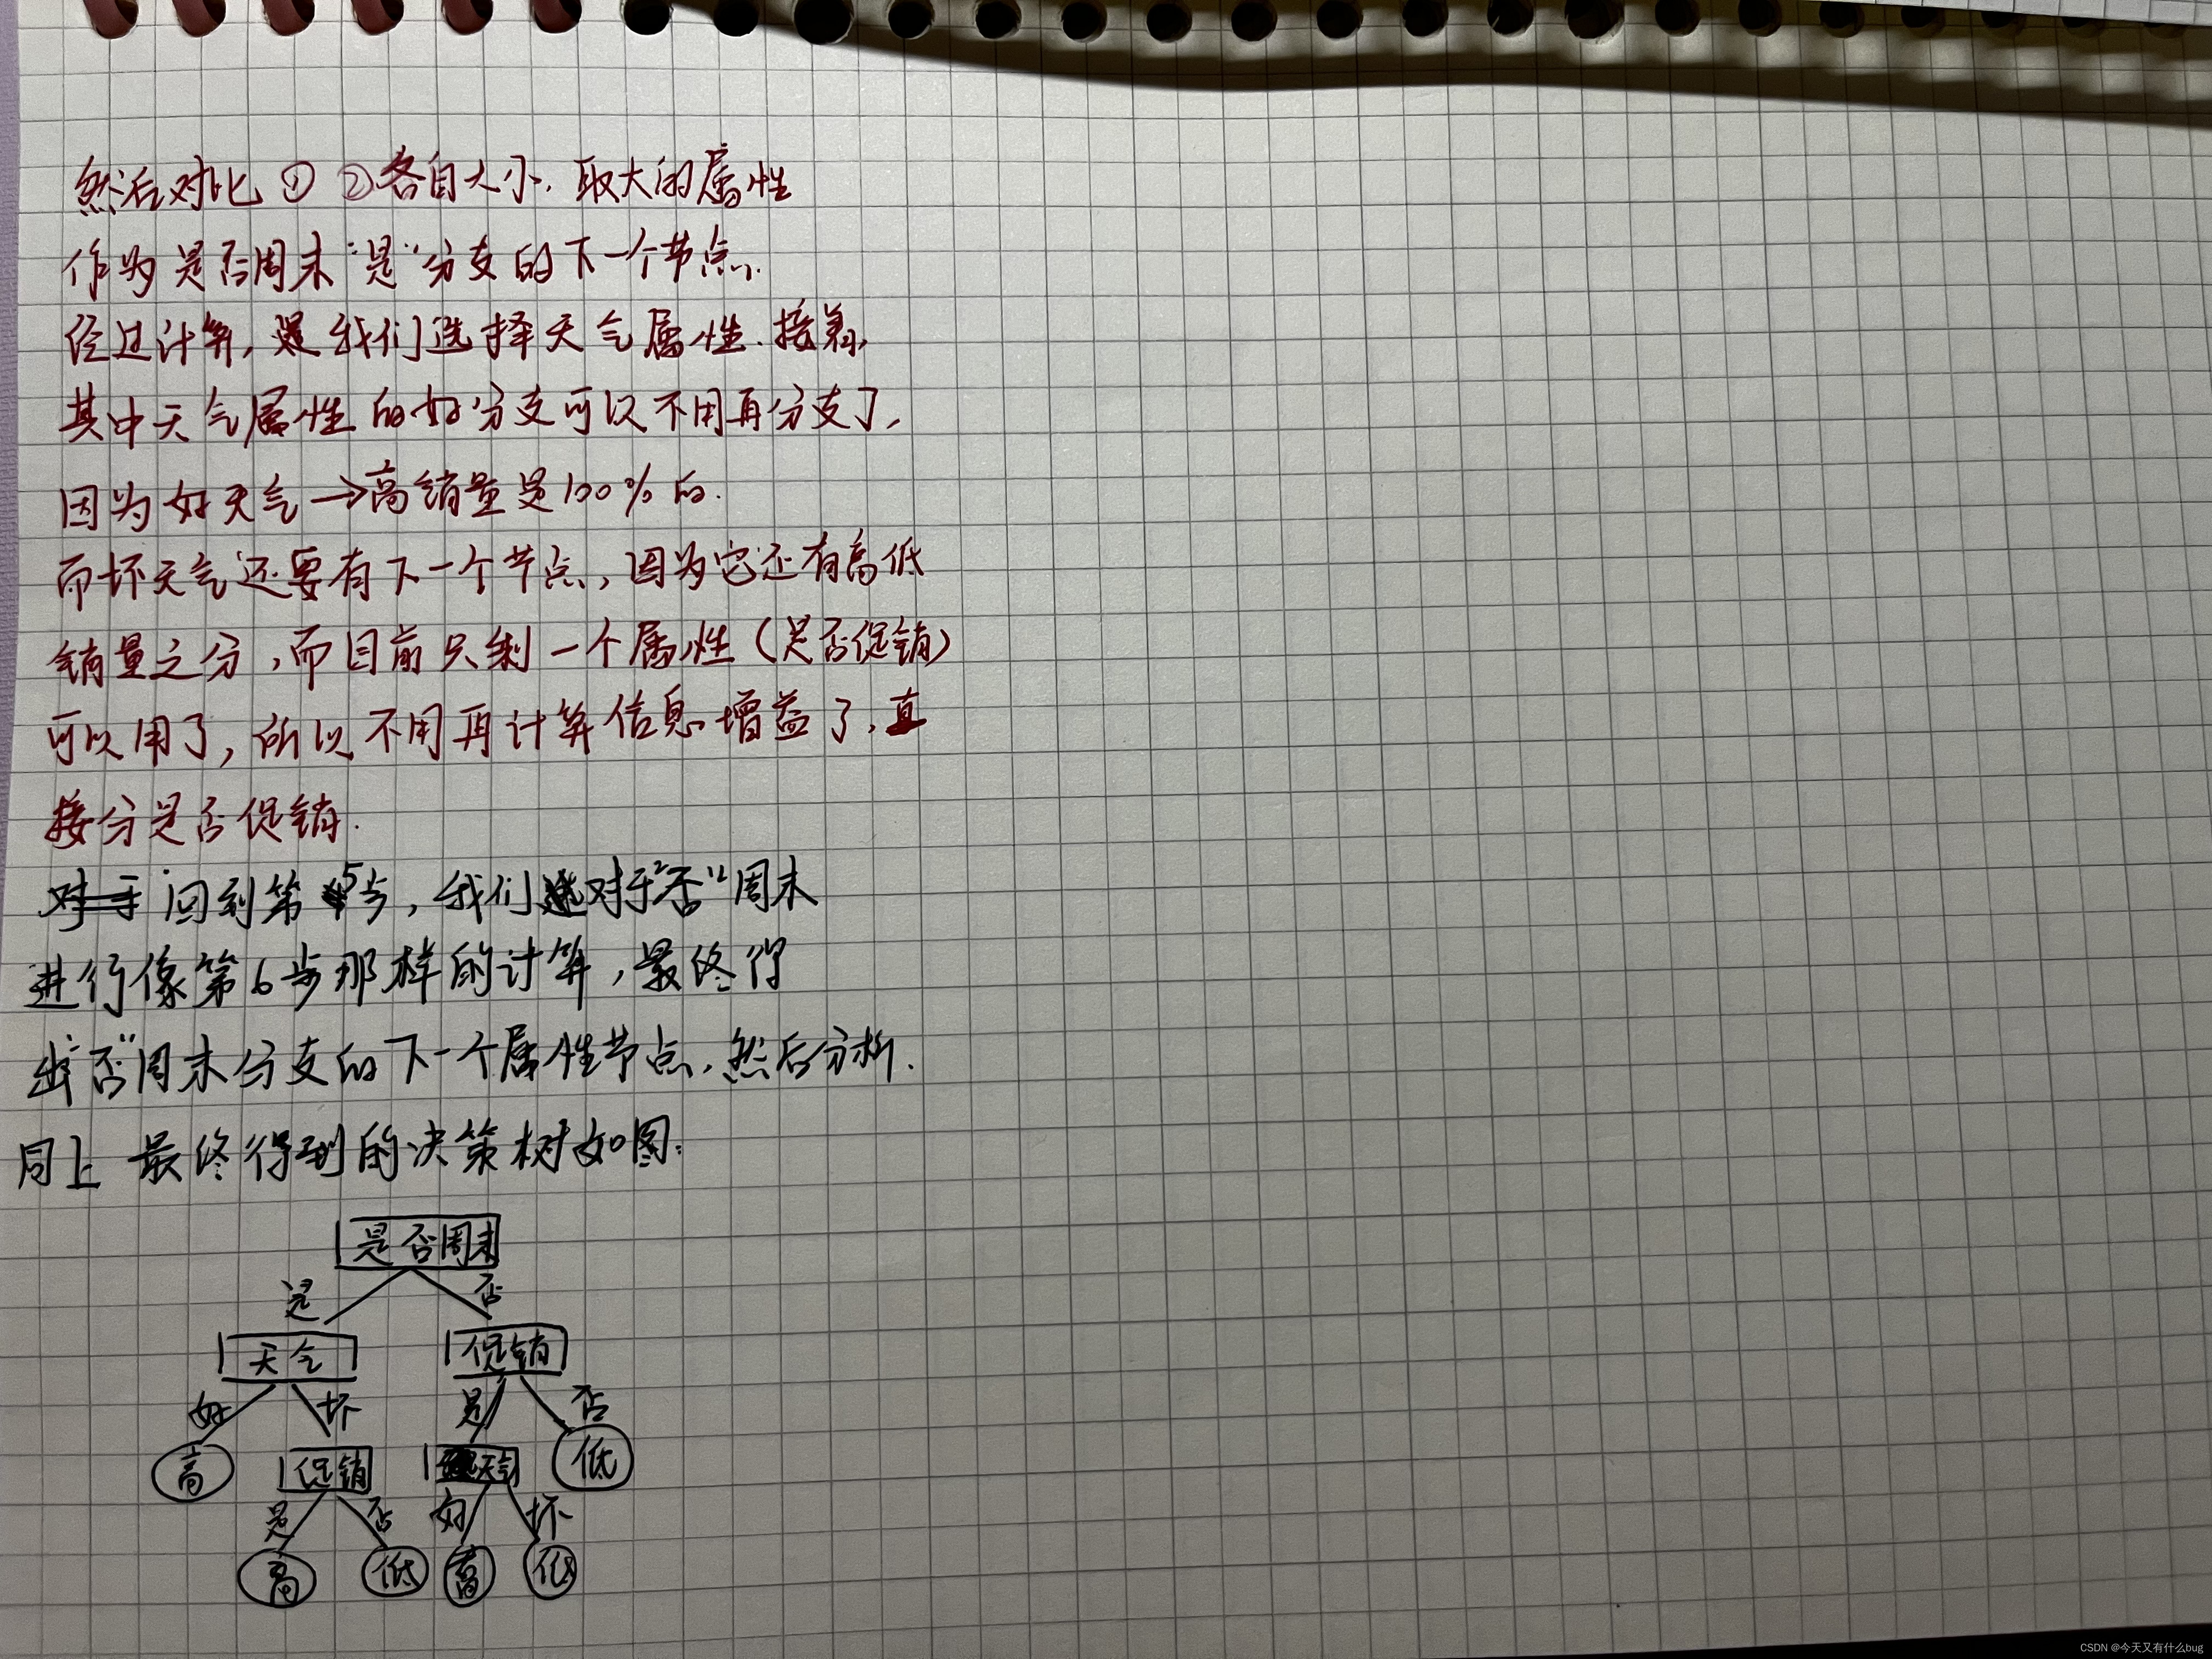 然后对比 ① ②各自大小, 取大的属性
作为 是否周末 "是" 分支的下一个节点.
经过计算, 我们选择天气属性. 接着,
其中天气属性的好分支可以不用再分支了,
因为好天气→高销量是100%的.
而坏天气还要有下一个节点, 因为它还有高低
销量之分, 而目前只剩一个属性 (是否促销)
可以用了, 所以不用再计算信息增益了, 直
接分是否促销.
对于 回到第5步, 我们对于"否"周末
进行像第6步那样的计算, 最终得
出"否"周末分支的下一个属性节点, 然后分析.
同上 最终得到的决策树如图:
是否周末
是 否
天气 促销
好 坏 是 否
高 促销 天气 低
是 否 好 坏
高 低 高 低
CSDN @今天又有什么bug